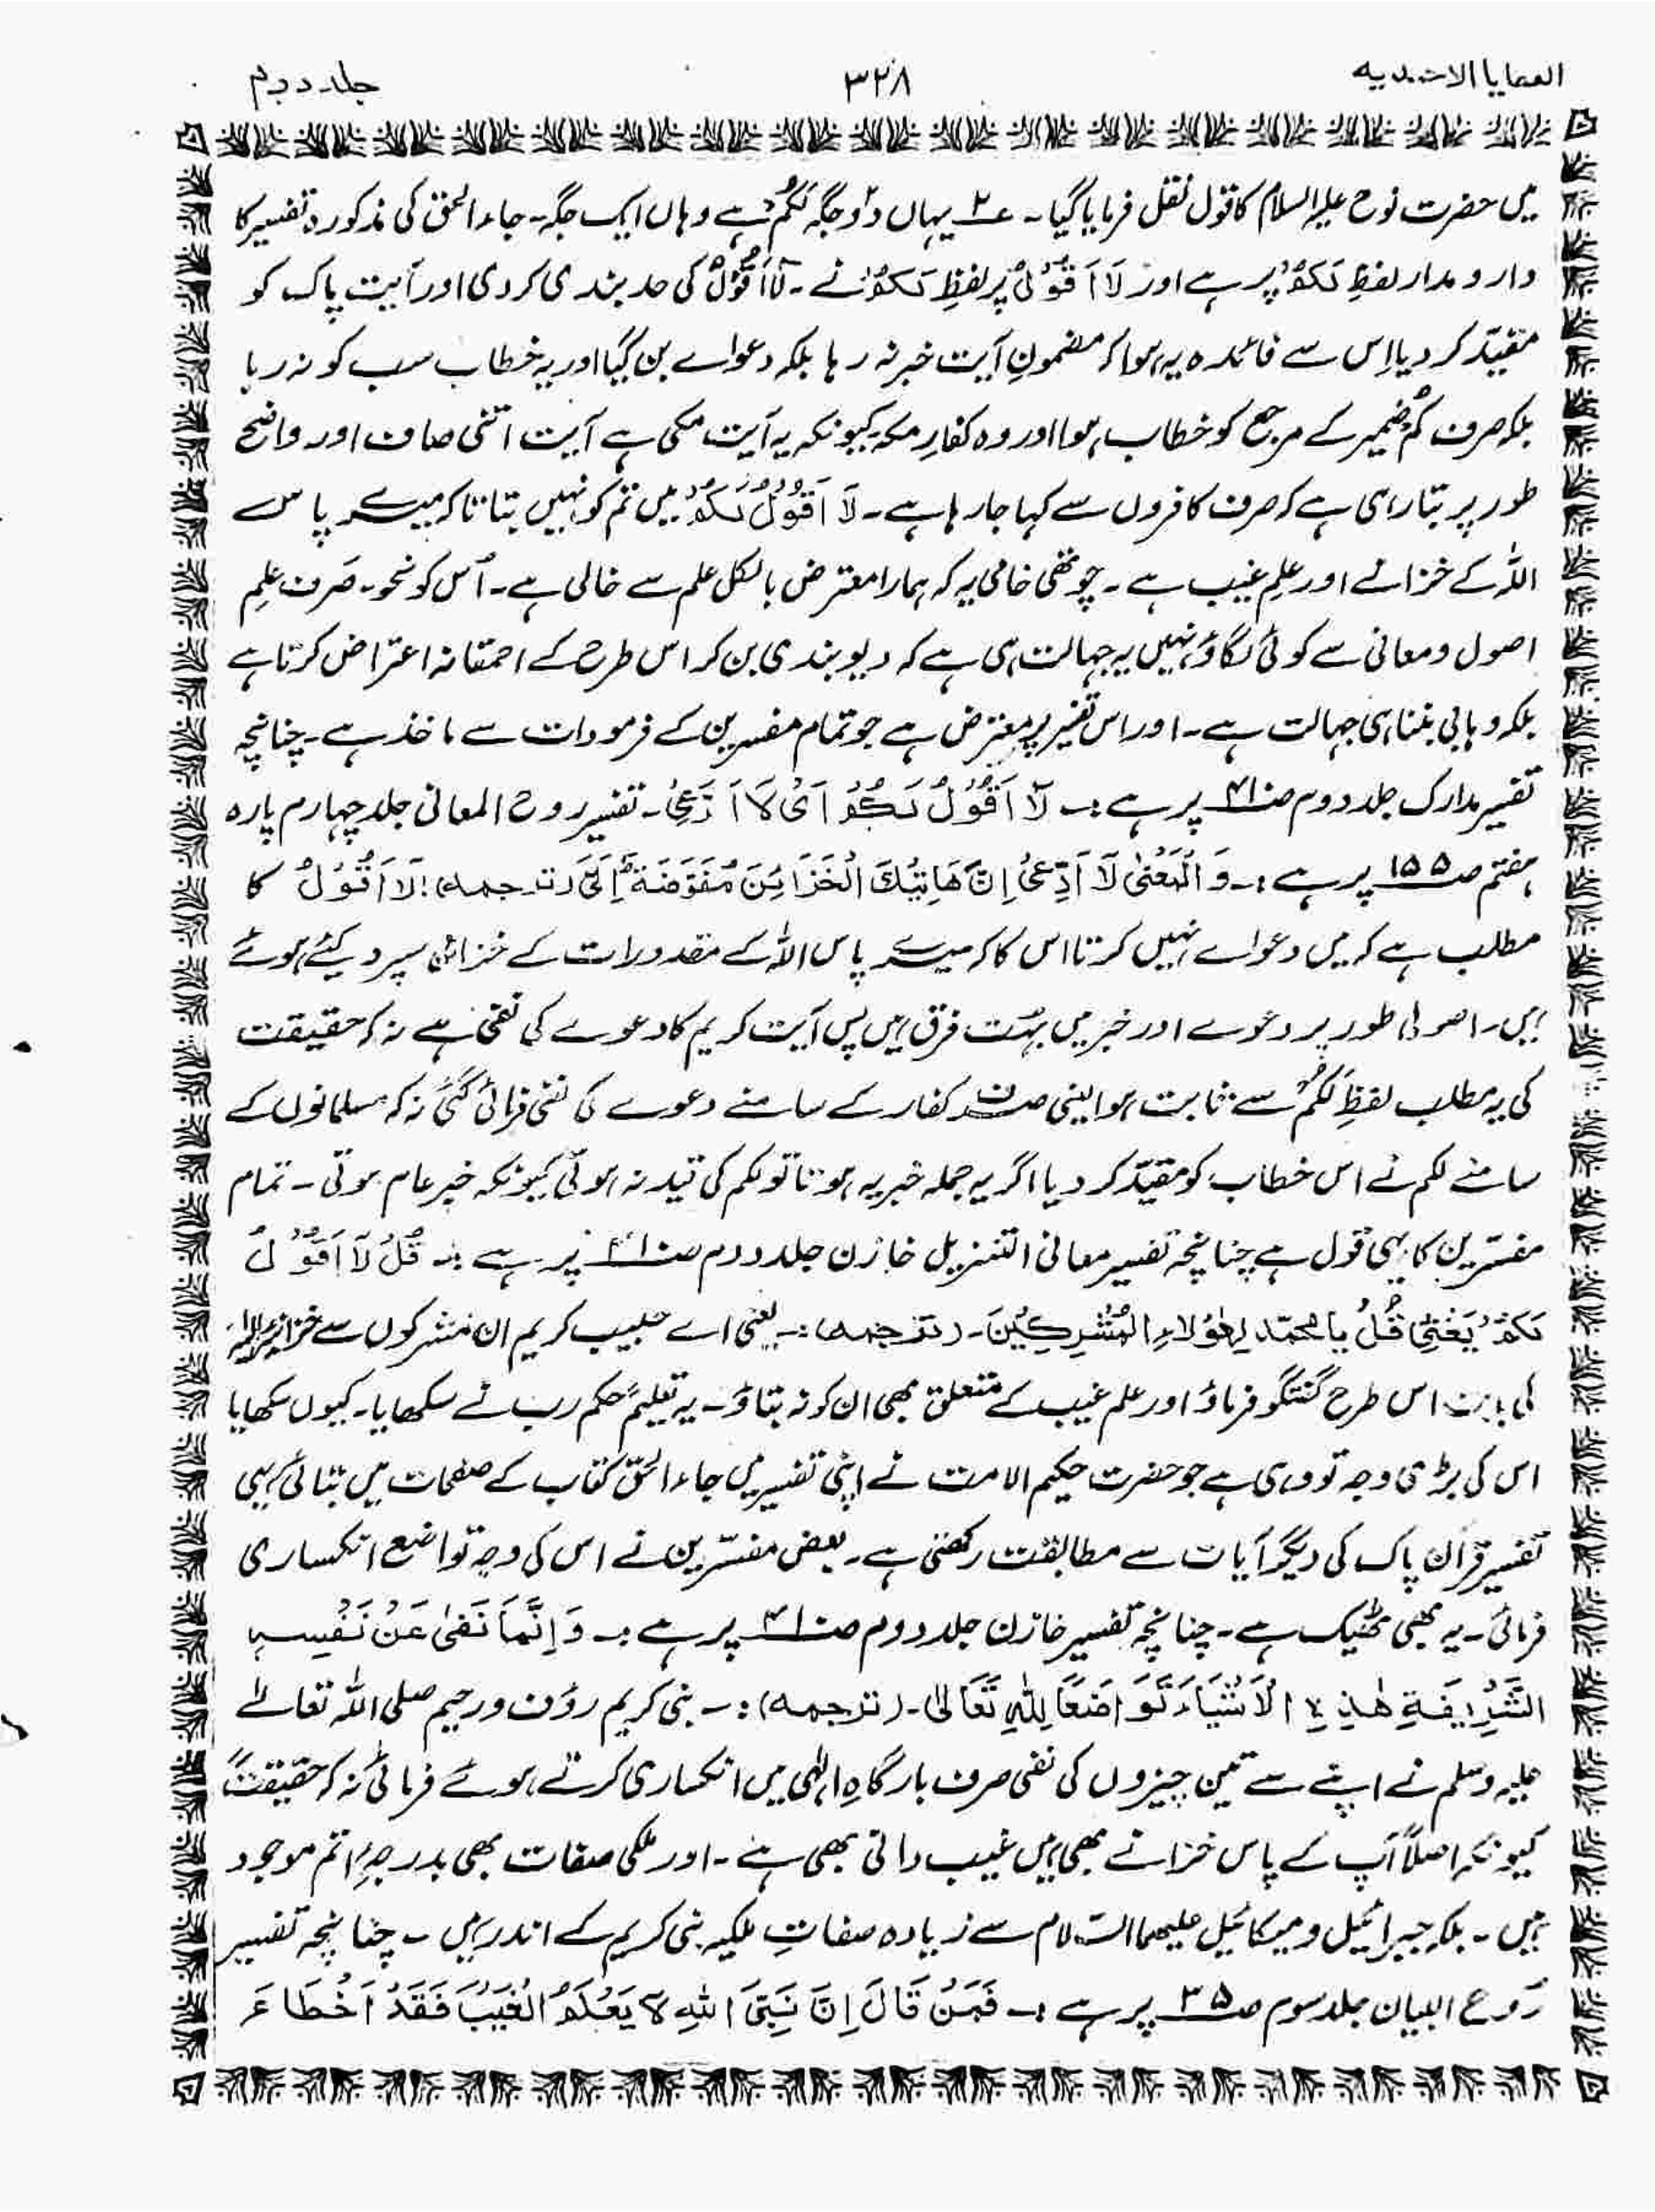 العطایا الاحمدیہ ۳۲۸ جلد دوم
میں حضرت نوح علیہ السلام کا قول نقل فرمایا گیا۔ ۲؎ یہاں دو۲ جگہ لَکُمْ ہے وہاں ایک جگہ۔ جاء الحق کی مذکورہ تفسیر کا
دار و مدار لفظِ لَکُمْ پر ہے اور لَا اَقُوْلُ پر لفظِ لَکُمْ نے۔ لَا اَقُوْلُ کی حد بندی کر دی اور آیت پاک کو
مقیّد کر دیا اِس سے فائدہ یہ ہوا کہ مضمونِ آیت خبر نہ رہا بلکہ دعواے بن گیا اور یہ خطاب سب کو نہ رہا
بلکہ صرف کُمْ ضمیر کے مرجع کو خطاب ہوا اور وہ کفارِ مکہ کیونکہ یہ آیت مکی ہے آیت اتنی صاف اور واضح
طور پر بتا رہی ہے کہ صرف کافروں سے کہا جا رہا ہے۔ لَا اَقُوْلُ لَکُمْ میں تم کو نہیں بتاتا کہ میرے پاس
اللہ کے خزانے اور علمِ غیب ہے۔ چوتھی خامی یہ کہ ہمارا معترض بالکل علم سے خالی ہے۔ اُس کو نحو۔ صَرف علمِ
اصول و معانی سے کوئی لگاؤ نہیں یہ جہالت ہی ہے کہ دیوبندی بن کر اس طرح کے احمقانہ اعتراض کرتا ہے
بلکہ وہابی بننا ہی جہالت ہے۔ اور اس تفسیر پر معترض ہے جو تمام مفسرین کے فرمودات سے ماخذ ہے۔ چنانچہ
تفسیر مدارک جلد دوم صفحہ ۴۱ پر ہے:۔ لَا اَقُوْلُ لَکُمْ اَیْ لَا اَدَّعِیْ۔ تفسیر روح المعانی جلد چہارم پارہ
ہفتم صـ ۱۵۵ پر ہے:۔ وَ الْمَعْنٰی لَا اَدَّعِیْ اِنَّ ھَاتِیْکَ الْخَزَائِنَ مُفَوَّضَۃٌ اِلَیَّ (ترجمہ) لَا اَقُوْلُ کا
مطلب ہے کہ میں دعواے نہیں کرتا اس کا کہ میرے پاس اللہ کے مقدورات کے خزائن سپرد کیئے ہوئے
ہیں۔ اصولی طور پر دعوے اور خبر میں بہت فرق ہیں پس آیت کریم کا دعوے کی نفی ہے نہ کہ حقیقت
کی یہ مطلب لفظِ لَکُمْ سے ثابت ہوا یعنی صرف کفار کے سامنے دعوے کی نفی فرمائی گئی نہ کہ مسلمانوں کے
سامنے لکم نے اس خطاب کو مقیّد کر دیا اگر یہ جملہ خبریہ ہوتا تو لکم کی قید نہ ہوتی کیونکہ خبر عام ہوتی۔ تمام
مفسّرین کا یہی قول ہے چنانچہ تفسیر معانی التنزیل خازن جلد دوم صـ پر ہے:۔ قُلْ لَا اَقُوْلُ
لَکُمْ یَعْنِیْ قُلْ یا محمّد لِھٰؤُلَاءِ الْمُشْرِکِیْنَ۔ (ترجمہ):۔ یعنی اے حبیب کریم ان مشرکوں سے خزائن الٰہیہ
کی بابت اس طرح گفتگو فرماؤ اور علم غیب کے متعلق بھی ان کو نہ بتاؤ۔ یہ تعلیم حکم رب نے سکھایا۔ کیوں سکھایا
اس کی بڑی وجہ تو وہی ہے جو حضرت حکیم الامت نے اپنی تفسیر میں جاء الحق کتاب کے صفحات میں بتائی یہی
تفسیر قرآن پاک کی دیگر آیات سے مطابقت رکھتی ہے۔ بعض مفسّرین نے اس کی وجہ تواضع انکساری
فرمائی۔ یہ بھی ٹھیک ہے۔ چنانچہ تفسیر خازن جلد دوم صـ پر ہے:۔ وَ اِنَّمَا نَفٰی عَنْ نَفْسِہِ
الشَّرِیْفَۃِ ھٰذِہِ الْاَشْیَاءَ تَوَاضُعًا لِلّٰہِ تَعَالٰی۔ (ترجمہ):۔ نبی کریم رؤف و رحیم صلی اللہ تعالےٰ
علیہ وسلم نے اپنے سے تین چیزوں کی نفی صرف بارگاہِ الٰہی میں انکساری کرتے ہوئے فرمائی نہ کہ حقیقتًا
کیونکہ اصلًا آپ کے پاس خزانے بھی ہیں غیب دانی بھی ہے۔ اور ملکی صفات بھی بدرجہِ اتم موجود
ہیں۔ بلکہ جبرائیل و میکائیل علیھما السّلام سے زیادہ صفاتِ ملکیہ نبی کریم کے اندر ہیں۔ چنانچہ تفسیر
رُوح البیان جلد سوم صـ ۳۵ پر ہے:۔ فَمَنْ قَالَ اِنَّ نَبِیَّ اللہِ لَا یَعْلَمُ الْغَیْبَ فَقَدْ اَخْطَاءَ